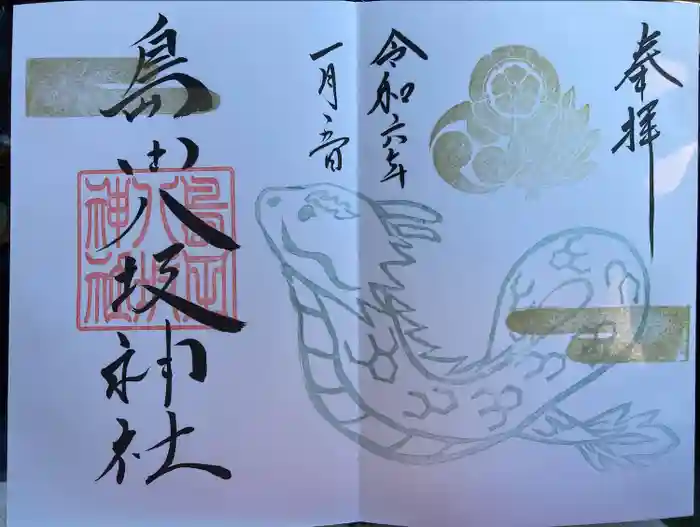 奉拝
令和六年
一月五日
島田八坂神社
島田
八坂
神社